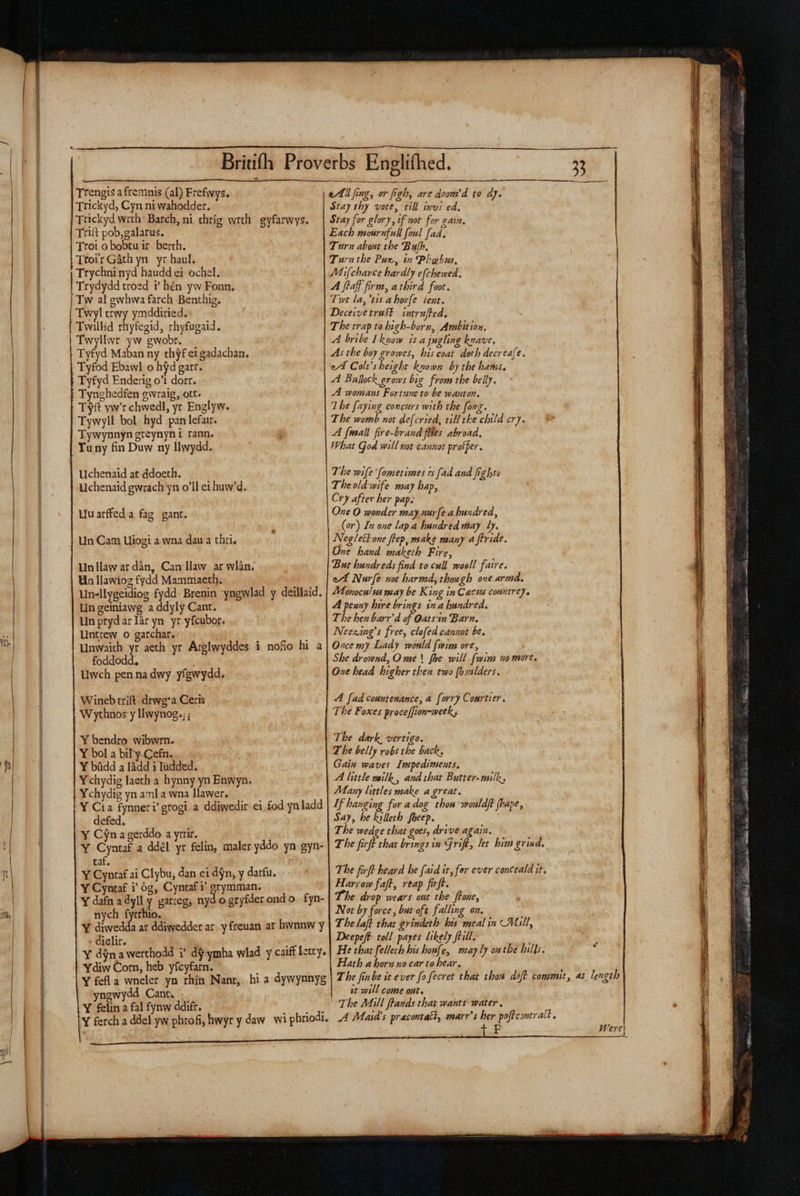 Britiſh Proverbs Engliſhed. 33
Trengis a fremnis (al) Frefwys.
Trickyd, Cyn ni wahodder.
Trickyd wrth' Barch, ni thrig wrth gyfarwys.
Triſt pob, galarus.
Troi o bobtu ir berth.
Troi'r Gâth yn yr haul.
Trychni nyd haudd ei ochel.
Trydydd troed i' hên yw Fonn.
Tw al gwhwa farch Benthig.
Twyl trwy ymddiried.
Twillid rhyfegid, rhyfugaid.
Twyllwr yw gwobr.
Tyfyd Maban ny thŷf ei gadachan.
Tyfod Ebawl o hŷd garr.
Tyfyd Enderig o'i dorr.
Tynghedfen gwraig, ott.
Tŷſt yw'r chwedl, yr Englyw.
Tywyll bol hyd pan lefair.
Tywynnyn greynyn i rann.
Tu ny fin Duw ny llwydd.
Uchenaid at ddoeth.
Uchenaid gwrach yn o'll ei huw'd.
Uu arffed a fag gant.
Un Cam Uiogi a wna dau a thri.
Unllaw ar dân, Can llaw ar wlân.
Un llawiog fydd Mammaeth.
Un-llygeidiog fydd Brenin yngwlad y deillaid.
Un geiniawg a ddyly Cant.
Un pryd ar Iâr yn yr yſcubor.
Untrew o garchar.
Unwaith yr aeth yr Arglwyddes i nofio hi a
foddodd.
Uwch pen na dwy yſgwydd.
Wineb triſt drwg a Ceris
Wythnos y llwynog.
Y bendro wibwrn.
Y bol a bil'y Cefn.
Y bûdd a lâdd i ludded.
Ychydig laeth a hynny yn Enwyn.
Ychydig yn aml a wna llawer.
Y Cia fynner i' grogi a ddiwedir ei fod yn ladd
defed.
Y Cŷn a gerddo a yrrir.
Y Cyntaf a ddêl yr felin, maler yddo yn gyn-
taf.
Y Cyntaf ai Clybu, dan ei dŷn, y datfu.
Y Cyntaf i' ôg, Cyntaf i' grymman.
Y dafn a dyll y garreg, nyd o gryfder ond o fyn-
nych fyrthio.
Y diwedda ar ddiwedder ar y freuan ar hwnnw y
dielir.
Y dŷn a werthodd i' dŷ ymha wlad y caiff letty.
Ydiw Corn, heb yſcyfarn.
Y feſl a wneler yn rhin Nant, hi a dywynnyg
yngwydd Cant.
Y felin a fal fynw ddifr.
Y ferch a ddel yw phrofi, hwyr y daw wi phriodi.
All ſing, or ſigh, are doom'd to dy.
Stay thy vote, till invi'ed.
Stay for glory, if not for gain.
Each mournfull ſoul ſad.
Turn about the Buſh.
Turn the Puz, in Phœbus.
Miſchance hardly eſchewed.
A ſtaff firm, a third foot.
Twt la, 'tis a horſe lent.
Deceive truſt intruſted.
The trap to high-born, Ambition.
A bribe I know is a jugling knave.
As the boy growes, his coat doth decreaſe.
A Colt's height known by the hams.
A Bullock grows big from the belly.
A womans Fortune to be wanton.
The ſaying concurs with the ſong.
The womb not deſcried, till the child cry.
A ſmall fire-brand flies abroad.
What God will not cannot proſper.
The wife ſometimes is ſad and ſights
The old wife may hap,
Cry after her pap.
One O wonder may nurſe a hundred,
(or) In one lap a hundred may ly.
Neglect one ſtep, make many a ſtride.
One hand maketh Fire,
But hundreds find to cull wooll faire.
A Nurſe not harmd, though one armd.
Monoculus may be King in Cacus countrey.
A penny hire brings in a hundred.
The hen barr'd of Oats in Barn.
Neezing's free, cloſed cannot be.
Once my Lady would ſwim ore,
She drownd, O me! ſhe will ſwim no more.
One head higher then two ſhoulders.
A ſad countenance, a ſorry Courtier.
The Foxes proceſſion-week,
The dark vertigo.
The belly robs the back.
Gain waves Impediments.
A little milk, and that Butter-milk,
Many littles make a great.
If hanging for a dog thou wouldſt ſhape,
Say, he killeth ſheep.
The wedge that goes, drive again.
The firſt that brings in Griſt, let him grind.
The firſt heard he ſaid it, for ever conceald it.
Harrow faſt, reap firſt.
The drop wears out the ſtone,
Not by force, but oft falling on.
The laſt that grindeth his meal in Mill,
Deepeſt toll payes likely ſtill.
He that ſelleth his houſe, may ly on the hills.
Hath a horn no car to hear.
The ſin be it ever ſo ſecret that thou doſt commit, at length
it will come out.
The Mill ſtands that wants water.
A Maid's pracontact, marr's her poſtcontract.
† F
Were